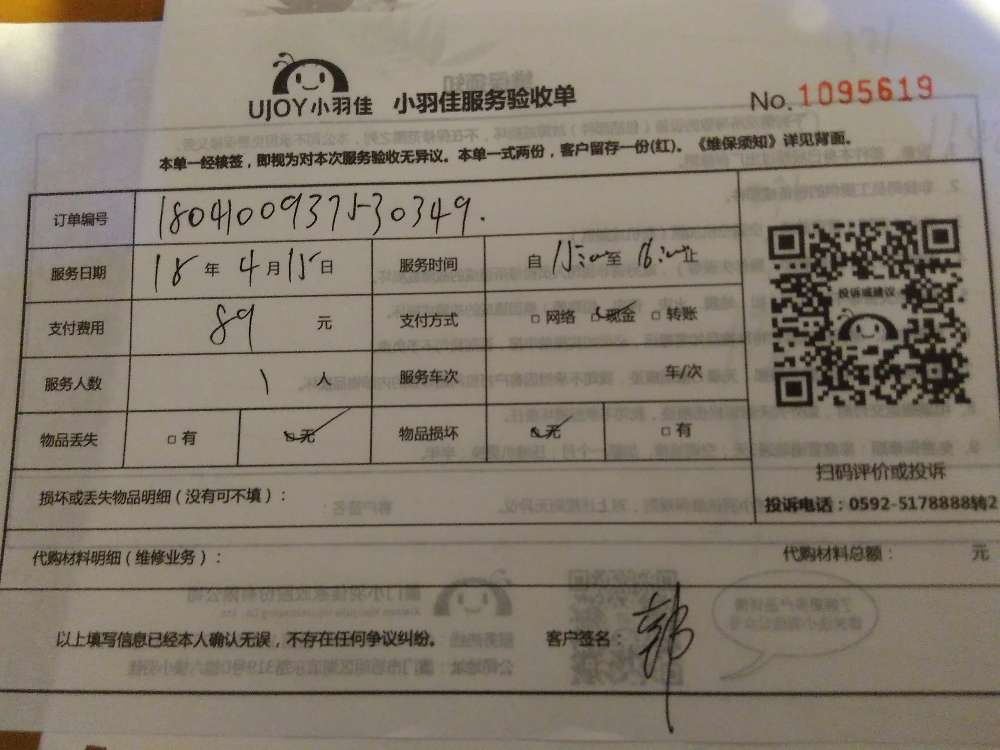 UJOY小羽佳 小羽佳服务验收单 No.1095619
本单一经核签，即视为对本次服务验收无异议。本单一式两份，客户留存一份(红)。《维保须知》详见背面。
订单编号 1804100937530349.
服务日期 18 年 4 月 15 日 服务时间 自 15:00 至 16:00 止
支付费用 89 元 支付方式 □ 网络 □ 现金 □ 转账
服务人数 1 人 服务车次 车/次
物品丢失 □ 有 □ 无 物品损坏 □ 无 □ 有
投诉或建议
扫码评价或投诉
投诉电话：0592-5178888转2
损坏或丢失物品明细（没有可不填）：
代购材料明细（维修业务）： 代购材料总额： 元
以上填写信息已经本人确认无误，不存在任何争议纠纷。 客户签名： 郭